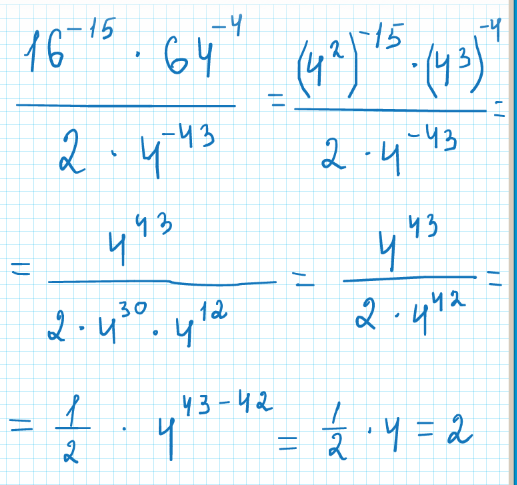 16^{-15} · 64^{-4} / 2 · 4^{-43} = (4^2)^{-15} · (4^3)^{-4} / 2 · 4^{-43} =
= 4^{43} / 2 · 4^{30} · 4^{12} = 4^{43} / 2 · 4^{42} =
= 1/2 · 4^{43-42} = 1/2 · 4 = 2